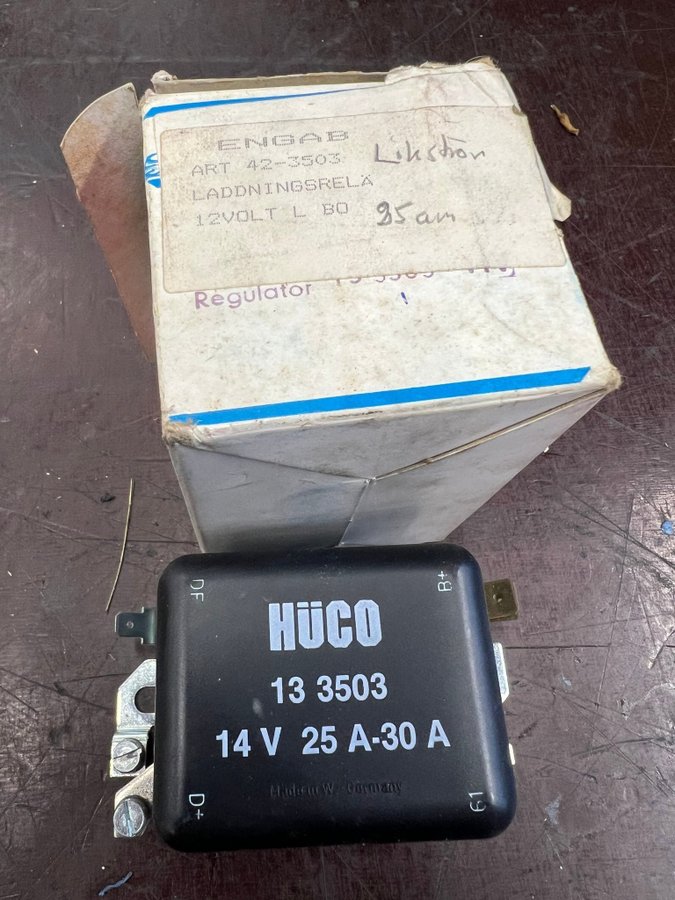 ENGAB
ART 42-3503 Likström
LADDNINGSRELÄ
12VOLT L BO 25am
Regulator 13 3503
DF
B+
HÜCO
13 3503
14 V 25 A-30 A
Made in W. Germany
D+
61